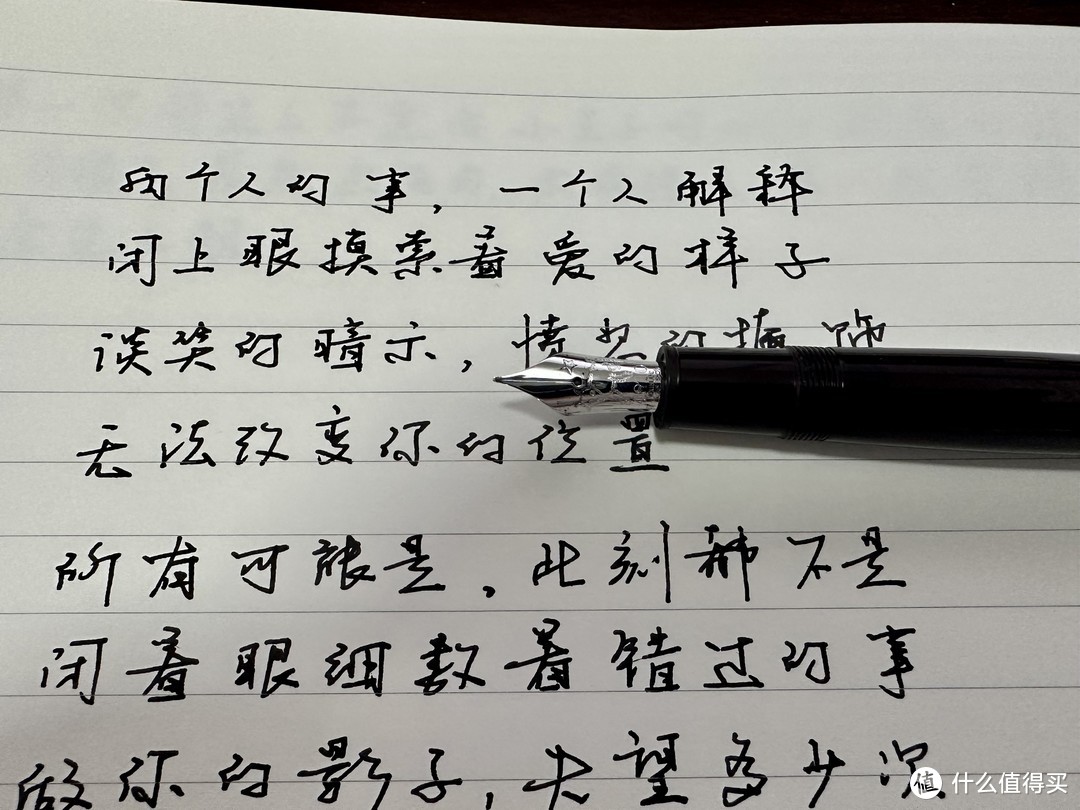 两个人的事，一个人解释
闭上眼摸索着爱的样子
谈笑的暗示，情
无法改变你的位置
所有可能是，此刻都不是
闭着眼细数着错过的事
做你的影子，失望多少次
什么值得买